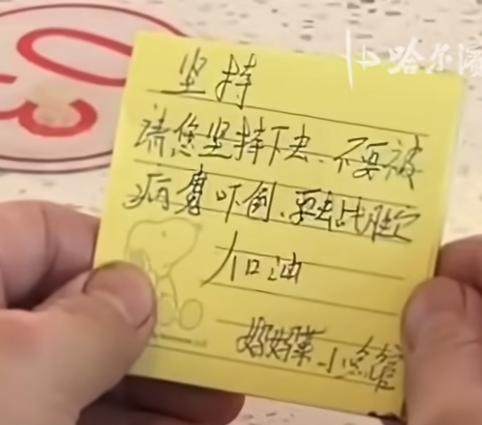 坚持
请您坚持下去、不要被
病魔吓倒、要战胜它
加油
03
哈尔滨